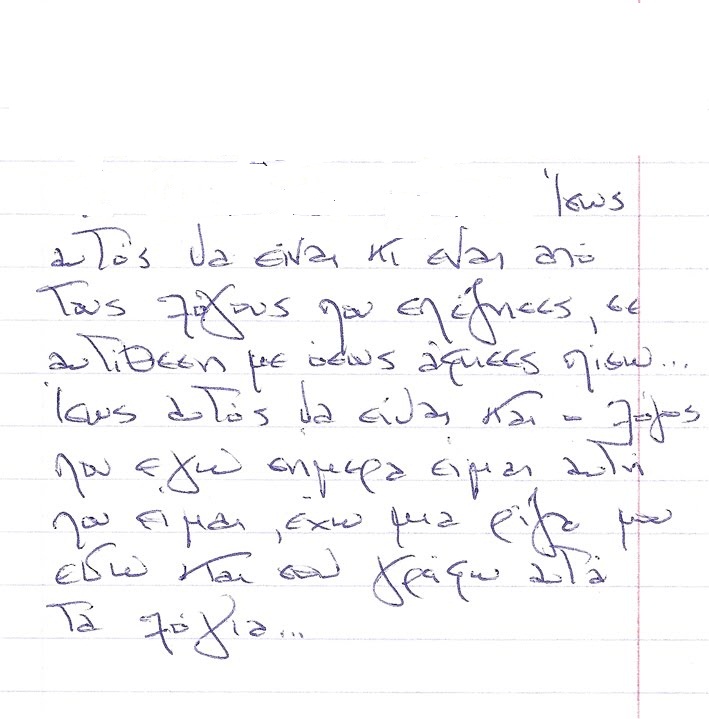 Ίσως
αυτός να είναι κι ένας από
τους λόγους που επέζησες, σε
αντίθεση με όσους άφησες πίσω...
Ίσως αυτός να είναι και ο λόγος
που εγώ σήμερα είμαι αυτή
που είμαι, έχω μια ρίζα μου
εδώ και σου γράφω αυτά
τα λόγια...